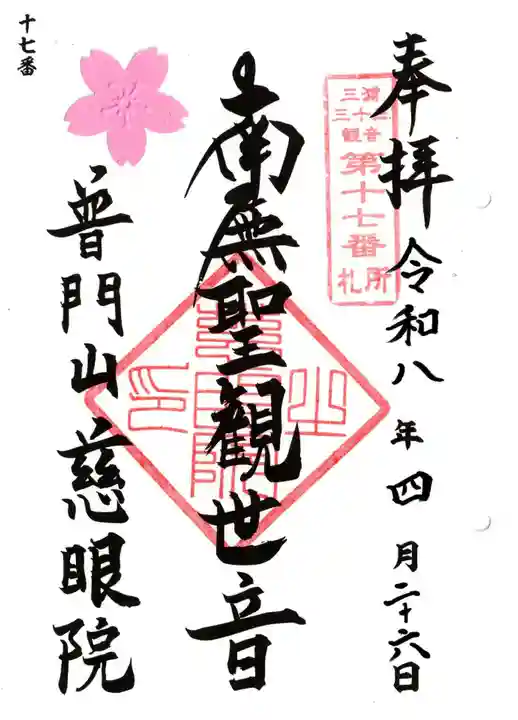 奉拝
令和八年四月二十六日
三浦
三十三
観音
第十七番
札所
南無聖観世音
十七番
普門山慈眼院